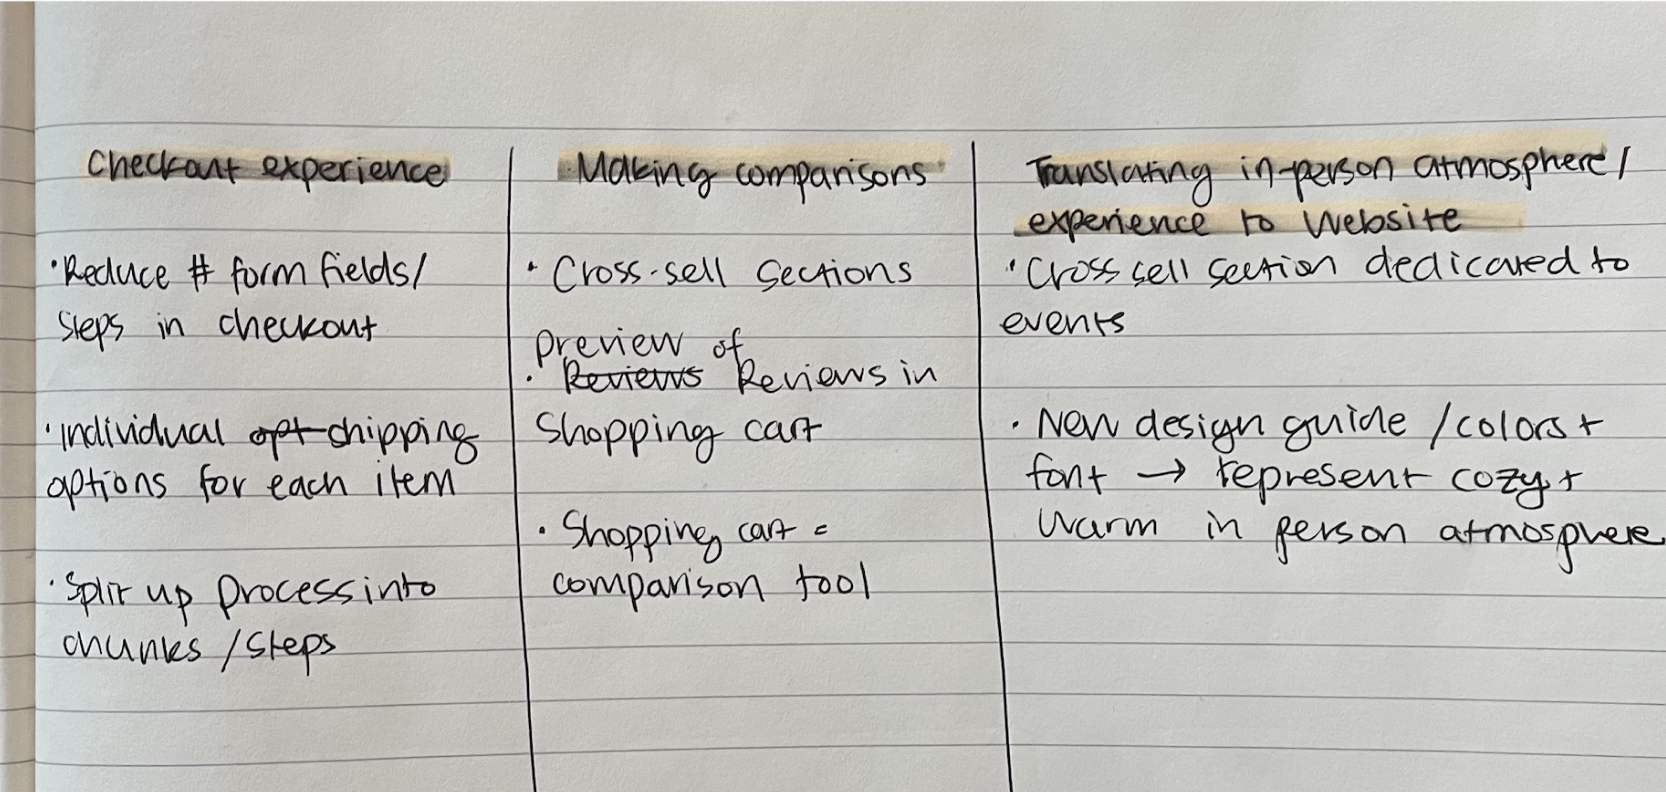 Checkout experience
• Reduce # form fields/
steps in checkout
• Individual opt shipping
options for each item
• Split up process into
chunks / steps
Making comparisons
• Cross-sell sections
preview of
• Reviews Reviews in
Shopping cart
• Shopping cart =
comparison tool
Translating in-person atmosphere/
experience to Website
• Cross sell section dedicated to
events
• New design guide / colors +
font → represent cozy +
warm in person atmosphere